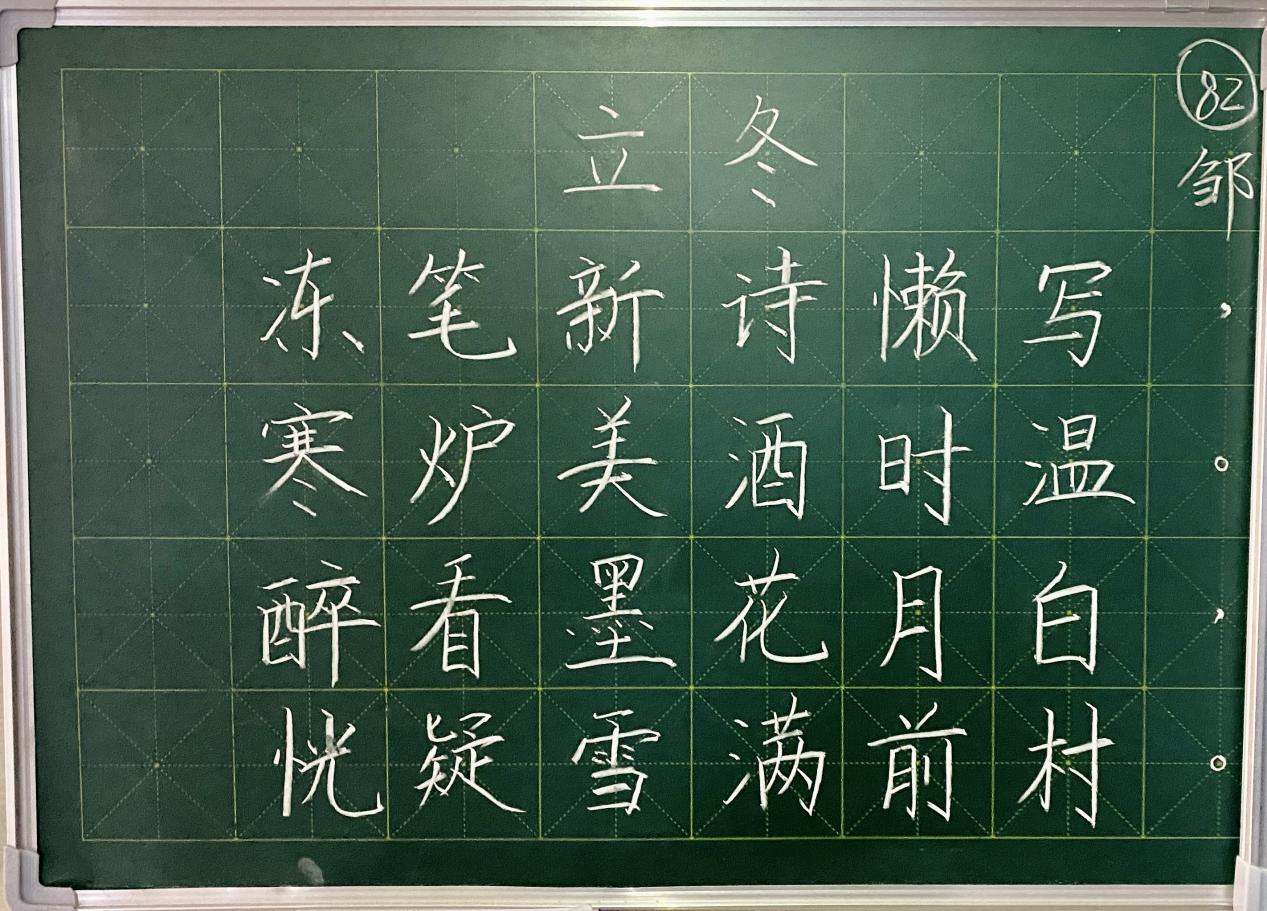 82
邹
立冬
冻笔新诗懒写，
寒炉美酒时温。
醉看墨花月白，
恍疑雪满前村。